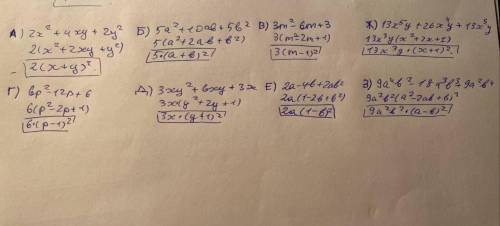 А) 2x² + 4xy + 2y²
2(x² + 2xy + y²)
2(x + y)²
Б) 5a² + 10ab + 5b²
5(a² + 2ab + b²)
5·(a + b)²
В) 3m² - 6m + 3
3(m² - 2m + 1)
3(m - 1)²
Ж) 13x⁵y + 26x⁴y + 13x³y
13x³y(x² + 2x + 1)
13x³y · (x + 1)²
Г) 6p² - 12p + 6
6(p² - 2p + 1)
6·(p - 1)²
Д) 3xy² + 6xy + 3x
3x(y² + 2y + 1)
3x·(y + 1)²
Е) 2a - 4b + 2ab²
2a(1 - 2b + b²)
2a(1 - b)²
З) 9a⁴b² - 18a³b³ + 9a²b⁴
9a²b²(a² - 2ab + b)²
9a²b² · (a - b)²